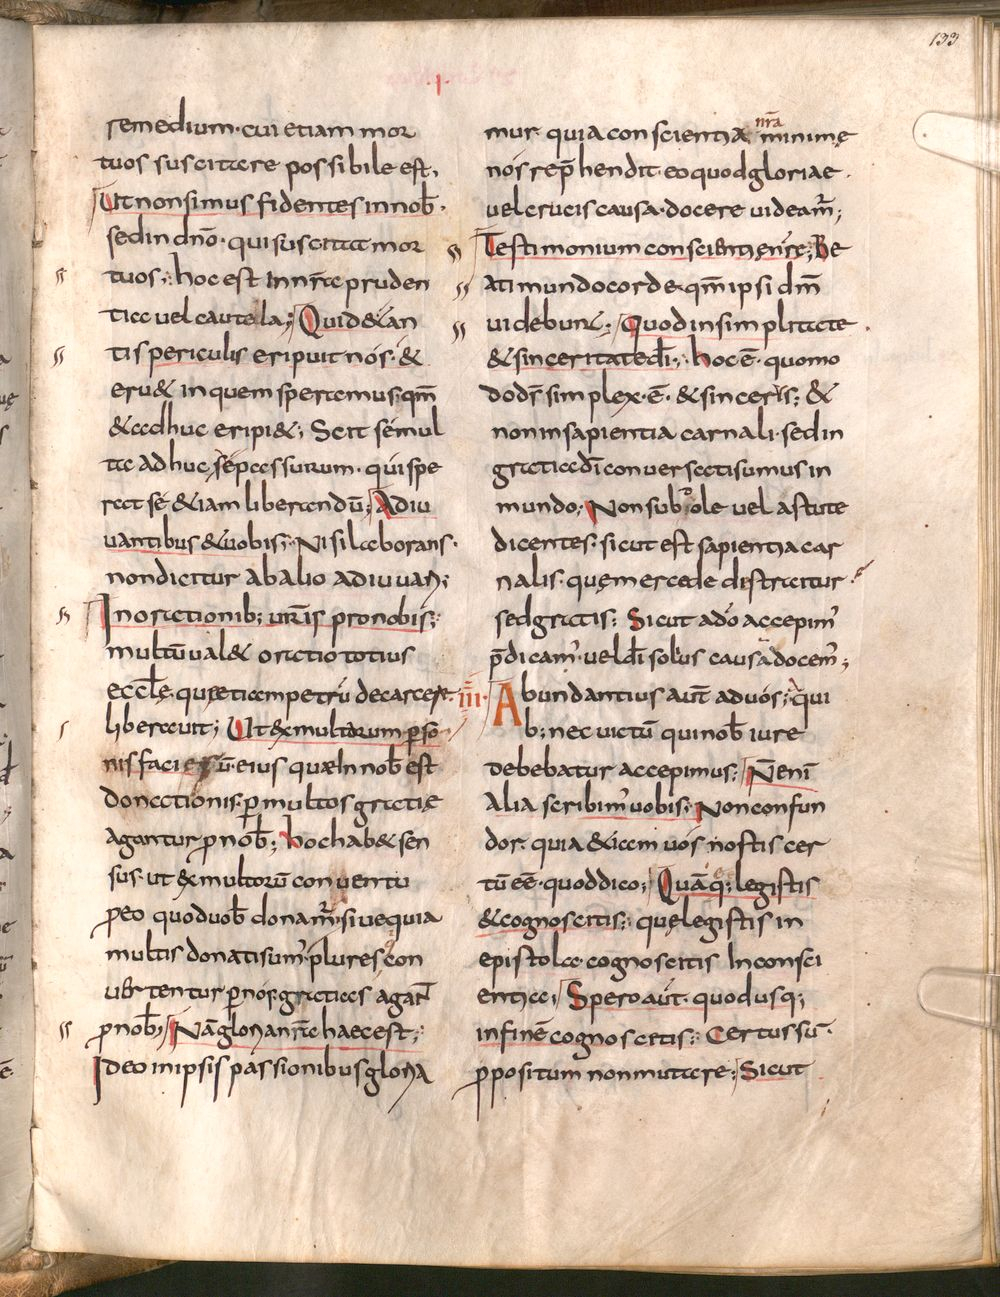 133
·I·
remedium· cui etiam mor
tuos suscitare possibile est,
Ut non simus fidentes in nob̄·
sed in dn̄o· qui suscitat mor
tuos; hoc est in nr̄a pruden
tia vel cautela; Quid & an
tis periculis eripuit nós· &
eru& in quem speramus· qm̄
& adhuc eripi&; Scit sémul
ta adhuc sépassurum· qui spe
rat sé &iam liberandū; Adiu
vantibus & vobis; Nisi laborans·
non dicitur ab alio adiuvari;
In orationib; vr̄is pro nobis;
multū val& oratio totius
eccl̄ę· quę etiam petrū de carcere
liberavit; Ut ex multorum p̱so
nis faciei ū· eius quæ in nob̄ est
donationis· p̱ multos gratię
agantur ꝓ nob̄; hoc hab& sen
sus· ut ex multorū conventu
ꝓ eo quod uob̄ donam̄· sive quia
multis donati sum̄· plures con
vertentur ꝑ nós· gratias agant̄
ꝓ nob̄; Nā gloria nr̄a haec est;
Ideo in ipsis passionibus gloria
mur· quia conscientia nr̄a minimę
nós rep̄hendit· eo quod gloriae·
vel crucis causa· docere videam̄;
Testimonium conscientię nr̄ę; Be
ati mundo corde· qm̄ ipsi dm̄
videbunt; Quod in simplicitate
& sinceritate dī; hoc ē· quomo
do dr̄ simplex· ē· & sinceris; &
non in sapientia carnali· sed in
gratia dī conversati sumus in
mundo; Non sub dole vel astute
dicentes· sicut est sapientia car
nalis· quę mercede distraitur·
sed gratis; Sicut a dō accepim̄
p̄dicam̄· vel dī solius causa docem̄;
IIII· Abundantius aut̄ ad vós; qui
b; nec victū qui nob̄ iure
debebatur accepimus; Nēnī
alia scribim̄ vobis; Non confun
dor· quia &iam vós nostis cer
tū eē· quod dico; Quā q̄; legistis
& cognoscitis; quę legistis in
epistola· cognoscitis in consci
entia; Spero aut̄· quod usq;
in finē cognoscetis; Certus sū·
ꝓpositum non mutare; Sicut